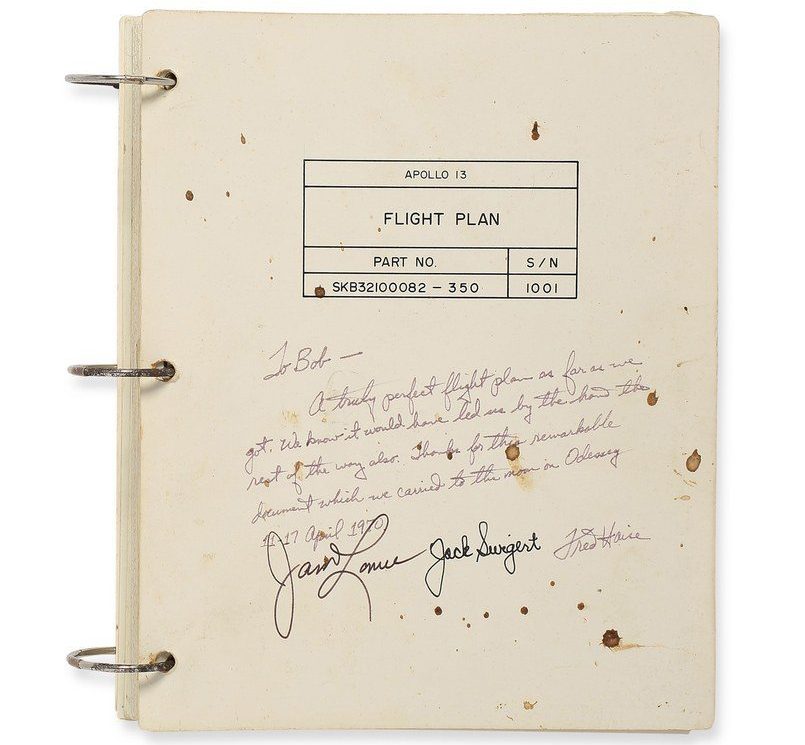 APOLLO 13
FLIGHT PLAN
PART NO. S/N
SKB32100082 - 350 1001
To Bob —
A truly perfect flight plan as far as we
got. We know it would have led us by the hand the
rest of the way also. Thanks for this remarkable
document which we carried to the moon on Odessey
11-17 April 1970
James Lovell Jack Swigert Fred Haise